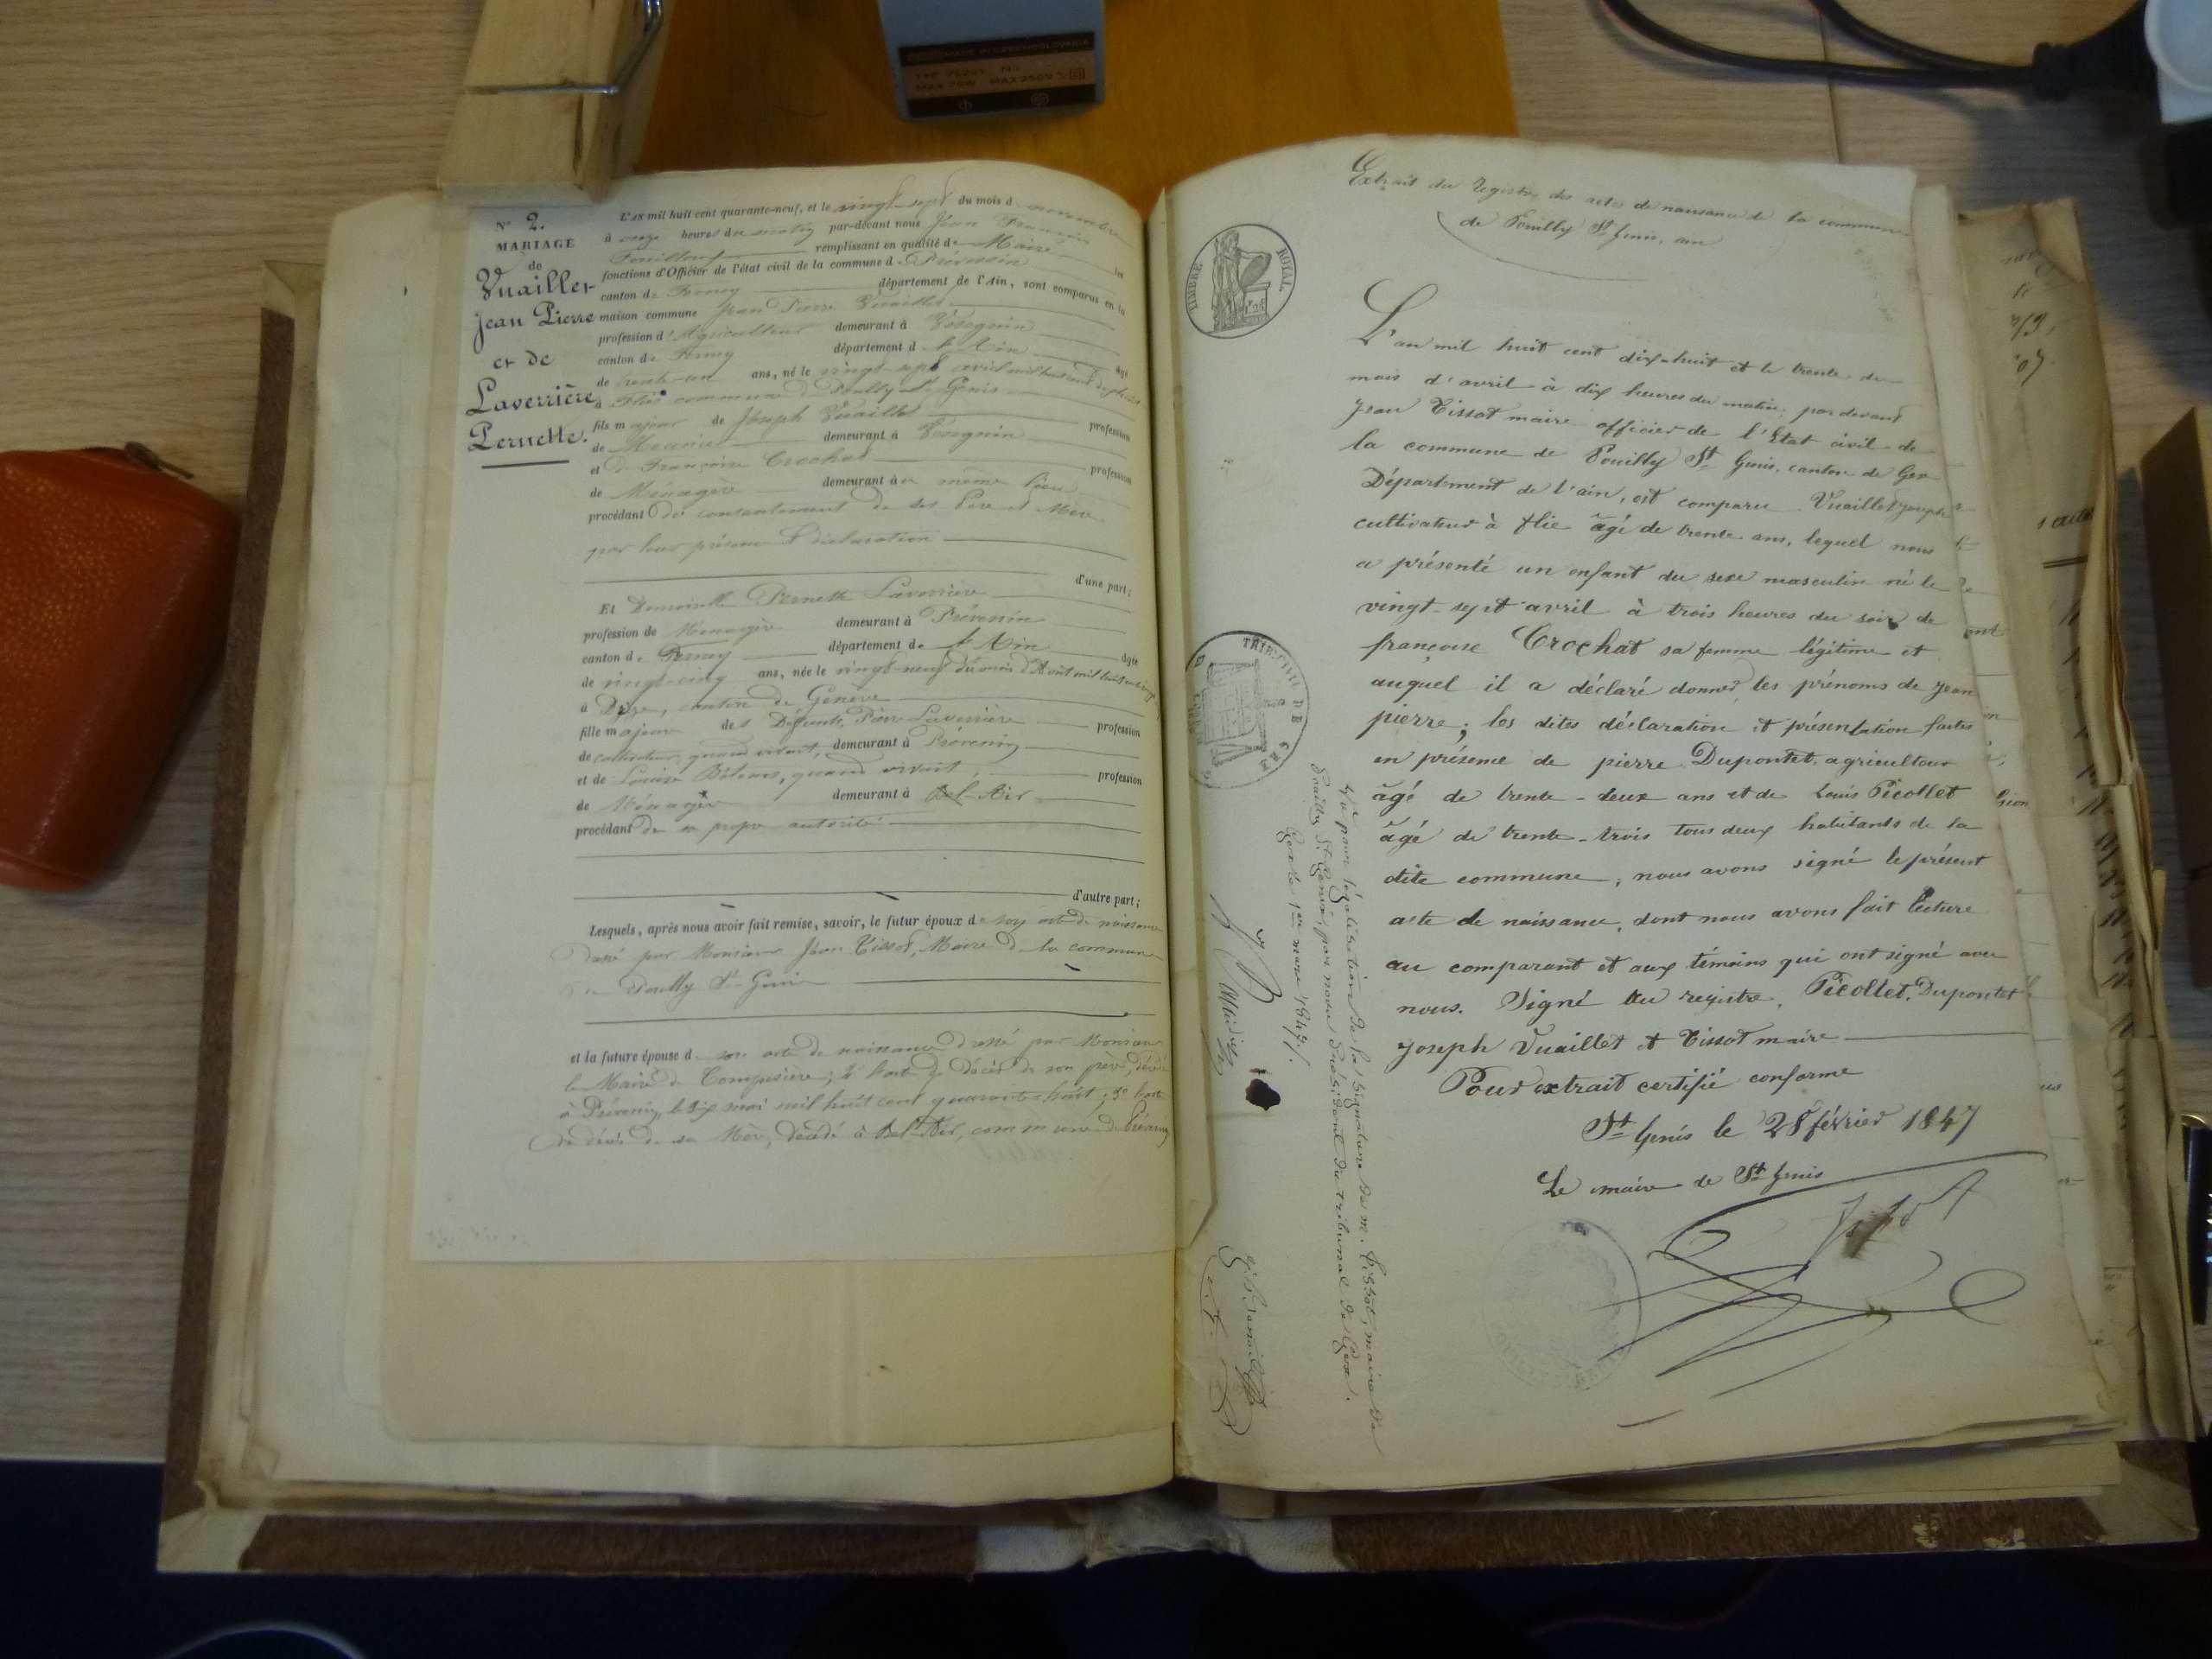 N° 2.
MARIAGE
de
Vuaillet
Jean Pierre
et de
Laverrière
Pernette.
L'AN mil huit cent quarante-neuf, et le vingt-sept du mois de novembre
à onze heures du matin par-devant nous Jean François
remplissant en qualité de Maire les
fonctions d'Officier de l'état civil de la commune de Prévessin
canton de Ferney département de l'Ain, sont comparus en la
maison commune Jean Pierre Vuaillet
profession d'Agriculteur demeurant à
canton de Ferney département de l'Ain âgé
de trente-un ans, né le vingt-sept avril mil huit cent dix-huit
à Flie commune de Pouilly St Genis
fils majeur de Joseph Vuaillet profession
de demeurant à
et de Françoise Crochat profession
de Ménagère demeurant au même lieu
procédant du consentement de ses Père et Mère
par leur présence & déclaration
d'une part;
Et Demoiselle Pernette Laverrière
profession de Ménagère demeurant à Prévessin
canton de Ferney département de l'Ain âgée
de vingt-cinq ans, née le vingt-neuf du mois d'Août mil huit cent
à canton de Genève
fille majeure des Défunts, Pierre Laverrière profession
de cultivateur, quand vivait, demeurant à Prévessin
et de Louise quand vivait, profession
de Ménagère demeurant à Bel-Air
procédant de sa propre autorité
d'autre part;
Lesquels, après nous avoir fait remise, savoir, le futur époux de son acte de naissance
dressé par Monsieur Jean Tissot, Maire de la commune
de Pouilly St Genis
et la future épouse de son acte de naissance dressé par Monsieur
le Maire de Compesière; 2° l'acte de décès de son père, décédé
à Prévessin, le dix mai mil huit cent quarante-huit; 3° l'acte
de décès de sa Mère, décédé à Bel-Air, commune de Prévessin
Extrait du Registre des actes de naissance de la commune
de Pouilly St Genis, ain
TIMBRE ROYAL
L'an mil huit cent dix-huit et le trente du
mois d'avril à dix heures du matin; par devant
Jean Tissot maire officier de l'État civil de
la commune de Pouilly St Genis, canton de Gex
Département de l'ain, est comparu Vuaillet joseph
cultivateur à flie âgé de trente ans, lequel nous
a présenté un enfant du sexe masculin né le
vingt-sept avril à trois heures du soir de
françoise Crochat sa femme légitime et
auquel il a déclaré donner les prénoms de jean
pierre; les dites déclaration et présentation faites
en présence de pierre Dupontet agriculteur
âgé de trente-deux ans et de Louis Picollet
âgé de trente-trois tous deux habitants de la
dite commune; nous avons signé le présent
acte de naissance, dont nous avons fait lecture
au comparant et aux témoins qui ont signé avec
nous. Signé au registre, Picollet, Dupontet
joseph Vuaillet et Tissot maire
Pour extrait certifié conforme
St Genis le 28 février 1847
Le maire de St Genis
Tissot
Vu pour légalisation de la signature de M. Tissot, maire de
Pouilly St Genis, par nous Président du tribunal de Gex.
Gex le 1er mars 1847.